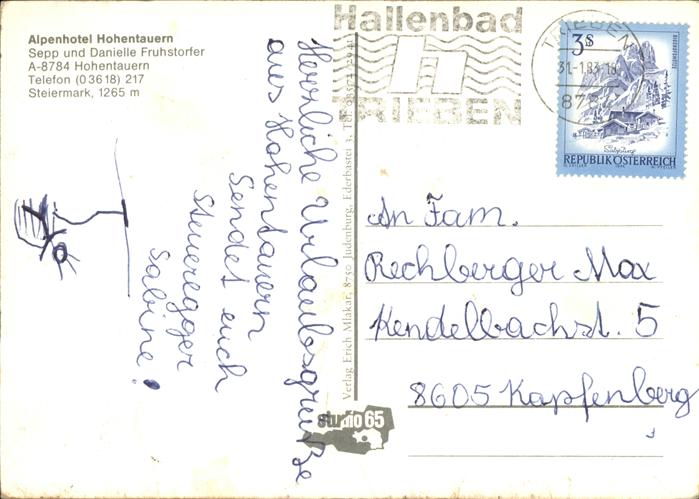 Alpenhotel Hohentauern
Sepp und Danielle Fruhstorfer
A-8784 Hohentauern
Telefon (0 36 18) 217
Steiermark, 1265 m
Hallenbad
TRIEBEN
TRIEBEN
31.-1.83-18
878
3 S
REPUBLIK ÖSTERREICH
Herrliche Urlaubsgreuße
aus Hohentauern
Sendet euch
Steueregger
Sabine!
Verlag Erich Mlakar, 8750 Judenburg, Ederbastei 3, Tel.
studio 65
An Fam.
Rechberger Max
Kendelbachst. 5
8605 Kapfenberg